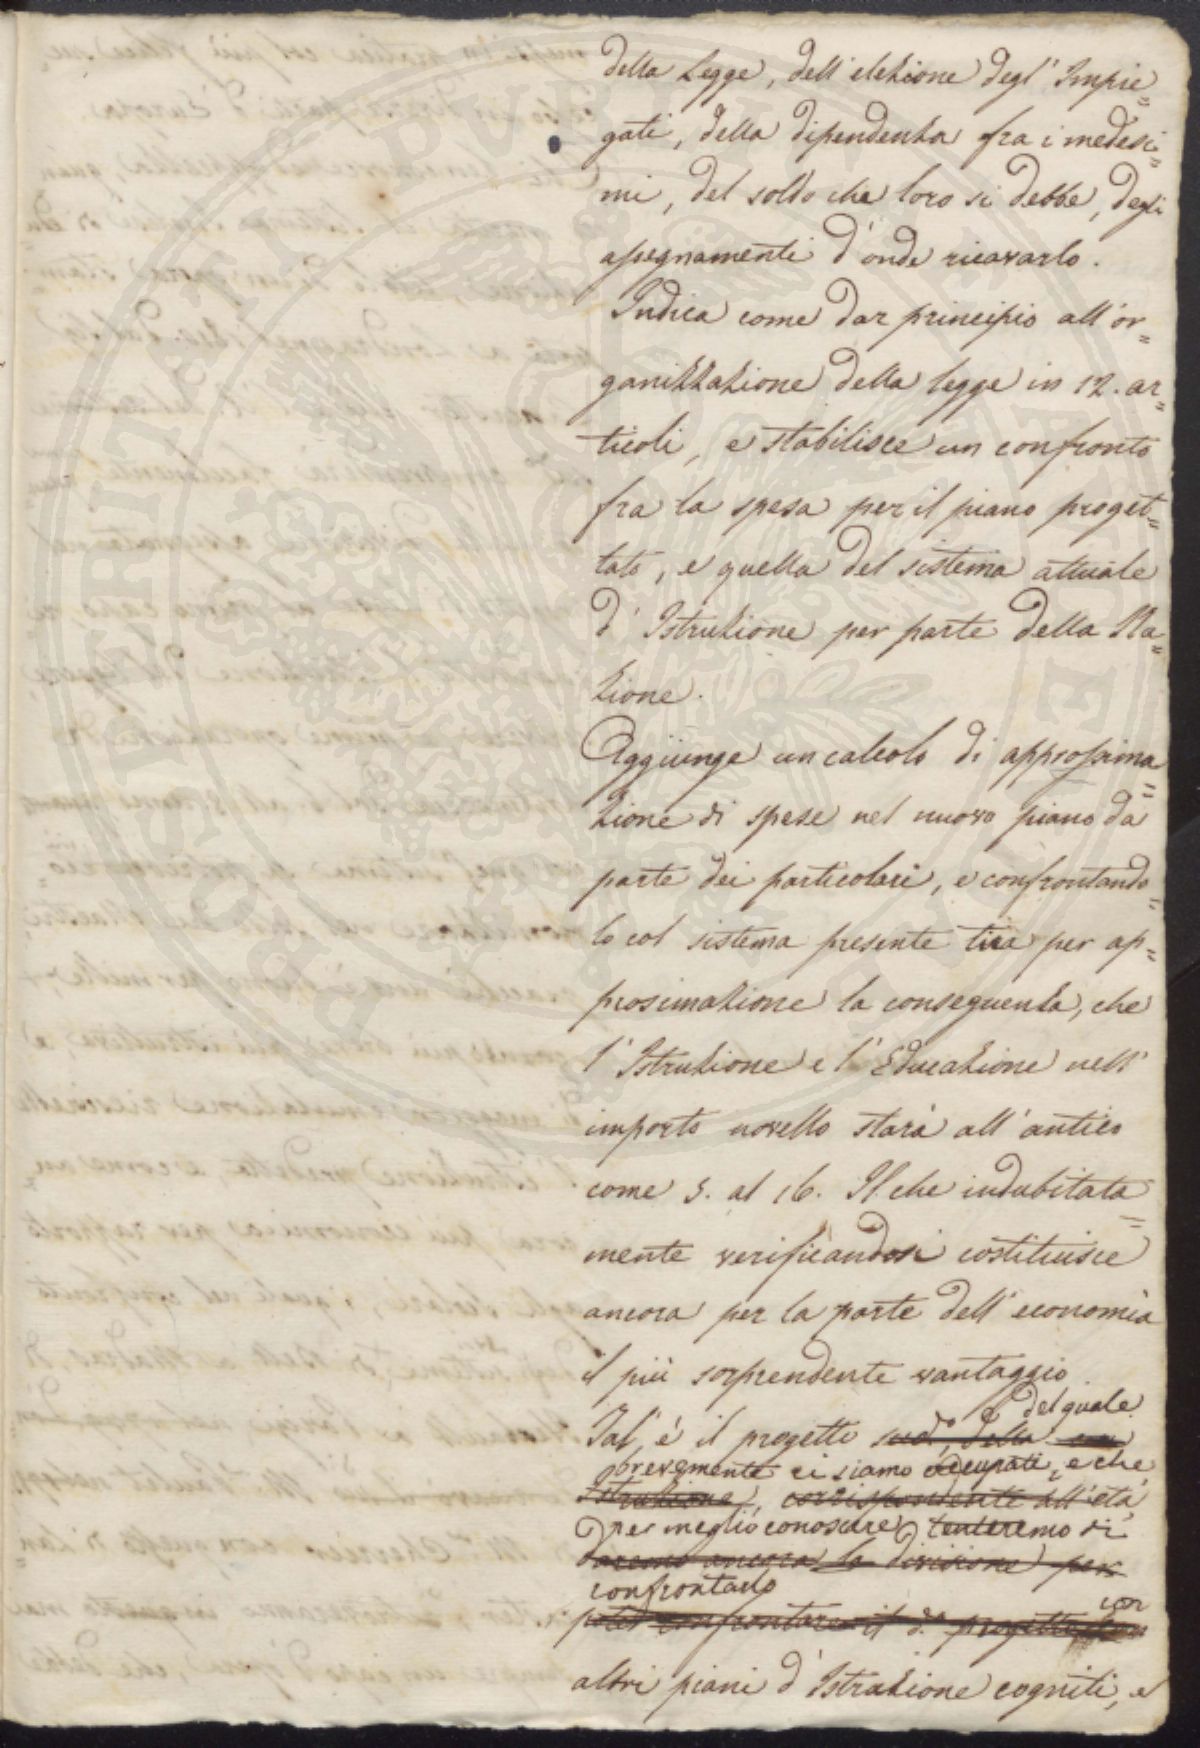 della Legge, dell'elezione degl'Impie=
gati, della dipendenza fra i medesi=
mi, del soldo che loro si debbe, degli
assegnamenti d'onde ricavarlo.
Indica come dar principio all'or=
ganizzazione della legge in 12. ar=
ticoli, e stabilisce un confronto
fra la spesa per il piano proget=
tato, e quella del sistema attuale
d'Istruzione per parte della Na=
zione.
Aggiunge un calcolo di approssima=
zione di spese nel nuovo piano da
parte dei particolari, e confrontando=
lo col sistema presente tira per ap=
prossimazione la conseguenza, che
l'Istruzione e l'Educazione nell'
importo novello starà all'antico
come 5. al 16. Il che indubitata=
mente verificandosi costituisce
ancora per la parte dell'economia
il più sorprendente vantaggio.
del quale
Tal'è il progetto sud.º, della
brevemente ci siamo occupati, e che
Istruzione, corrispondente all'età
per meglio conoscere, tenteremo di
daremo ancora la divisione per
confrontarlo
poter confrontare il d.º progetto con
con
altri piani d'Istruzione cogniti, e
PERIZIATI PUBBLICI